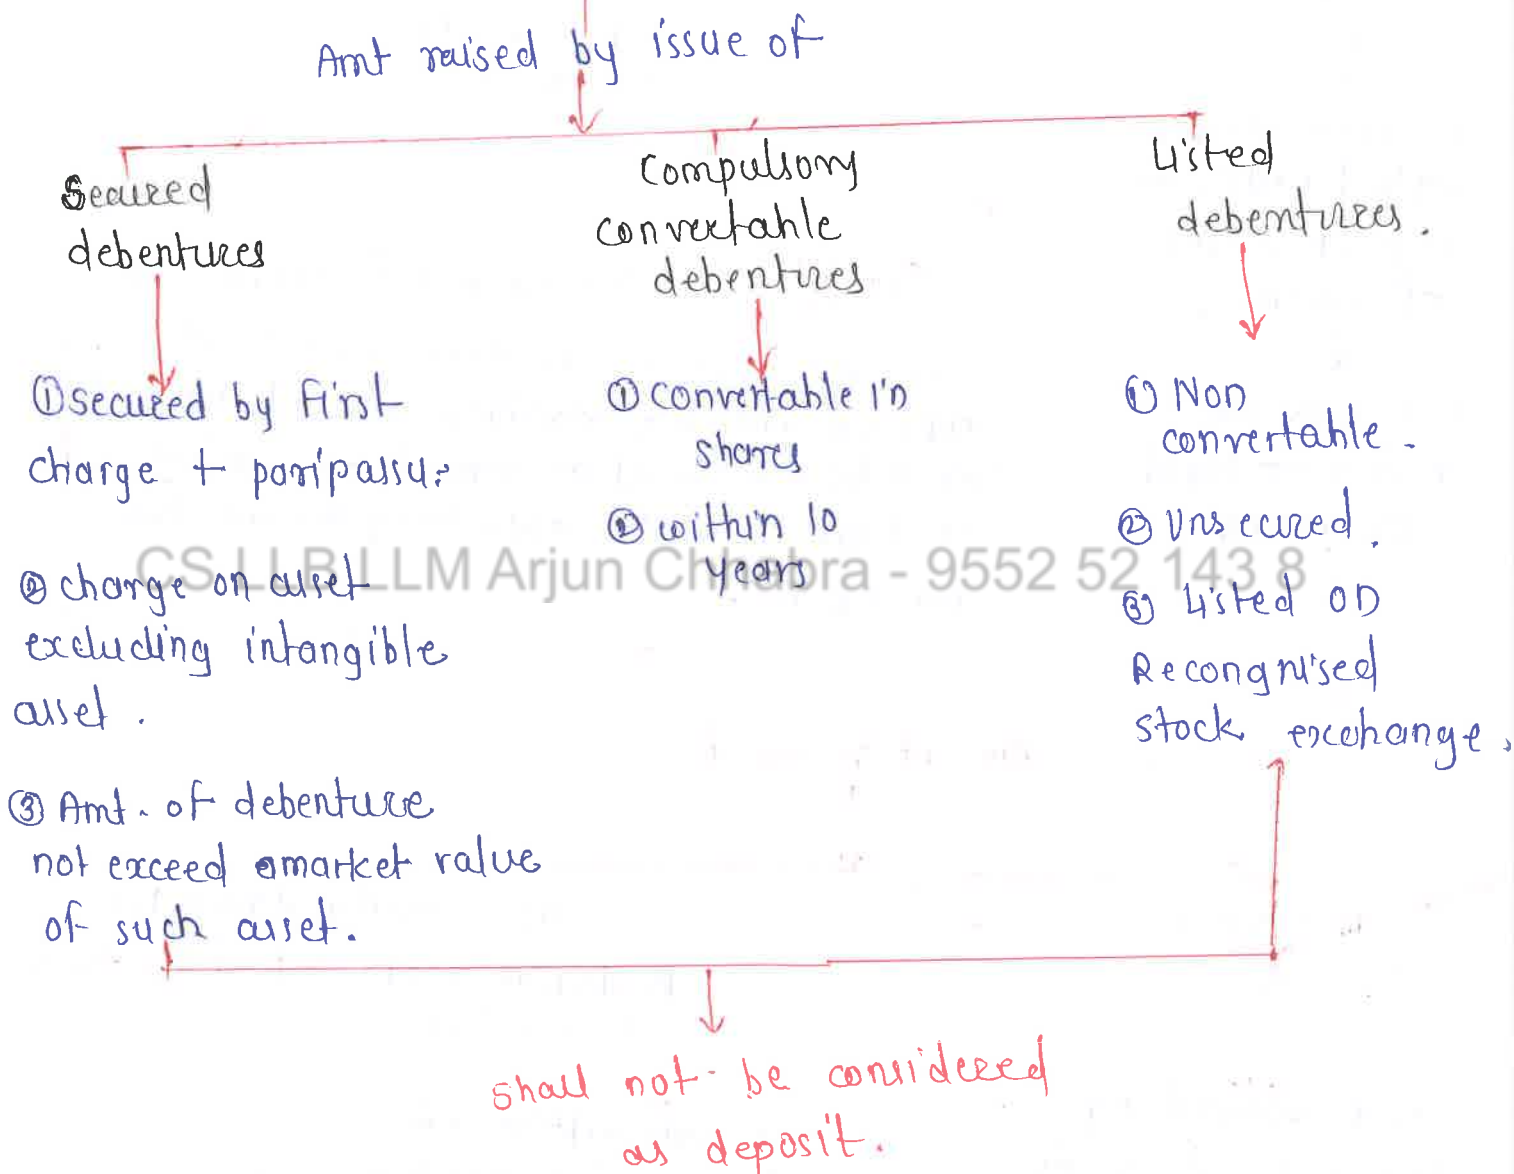 Amt raised by issue of
Secured
debentures
① secured by first
charge + paripassu.
② charge on asset
excluding intangible
asset.
③ Amt. of debenture
not exceed market value
of such asset.
Compulsory
convertable
debentures
① convertable in
shares
② within 10
years
Listed
debentures.
① Non
convertable.
② Unsecured.
③ Listed on
Recongnised
stock exchange.
CS LLB LLM Arjun Chhabra - 9552 52 143 8
shall not be considered
as deposit.